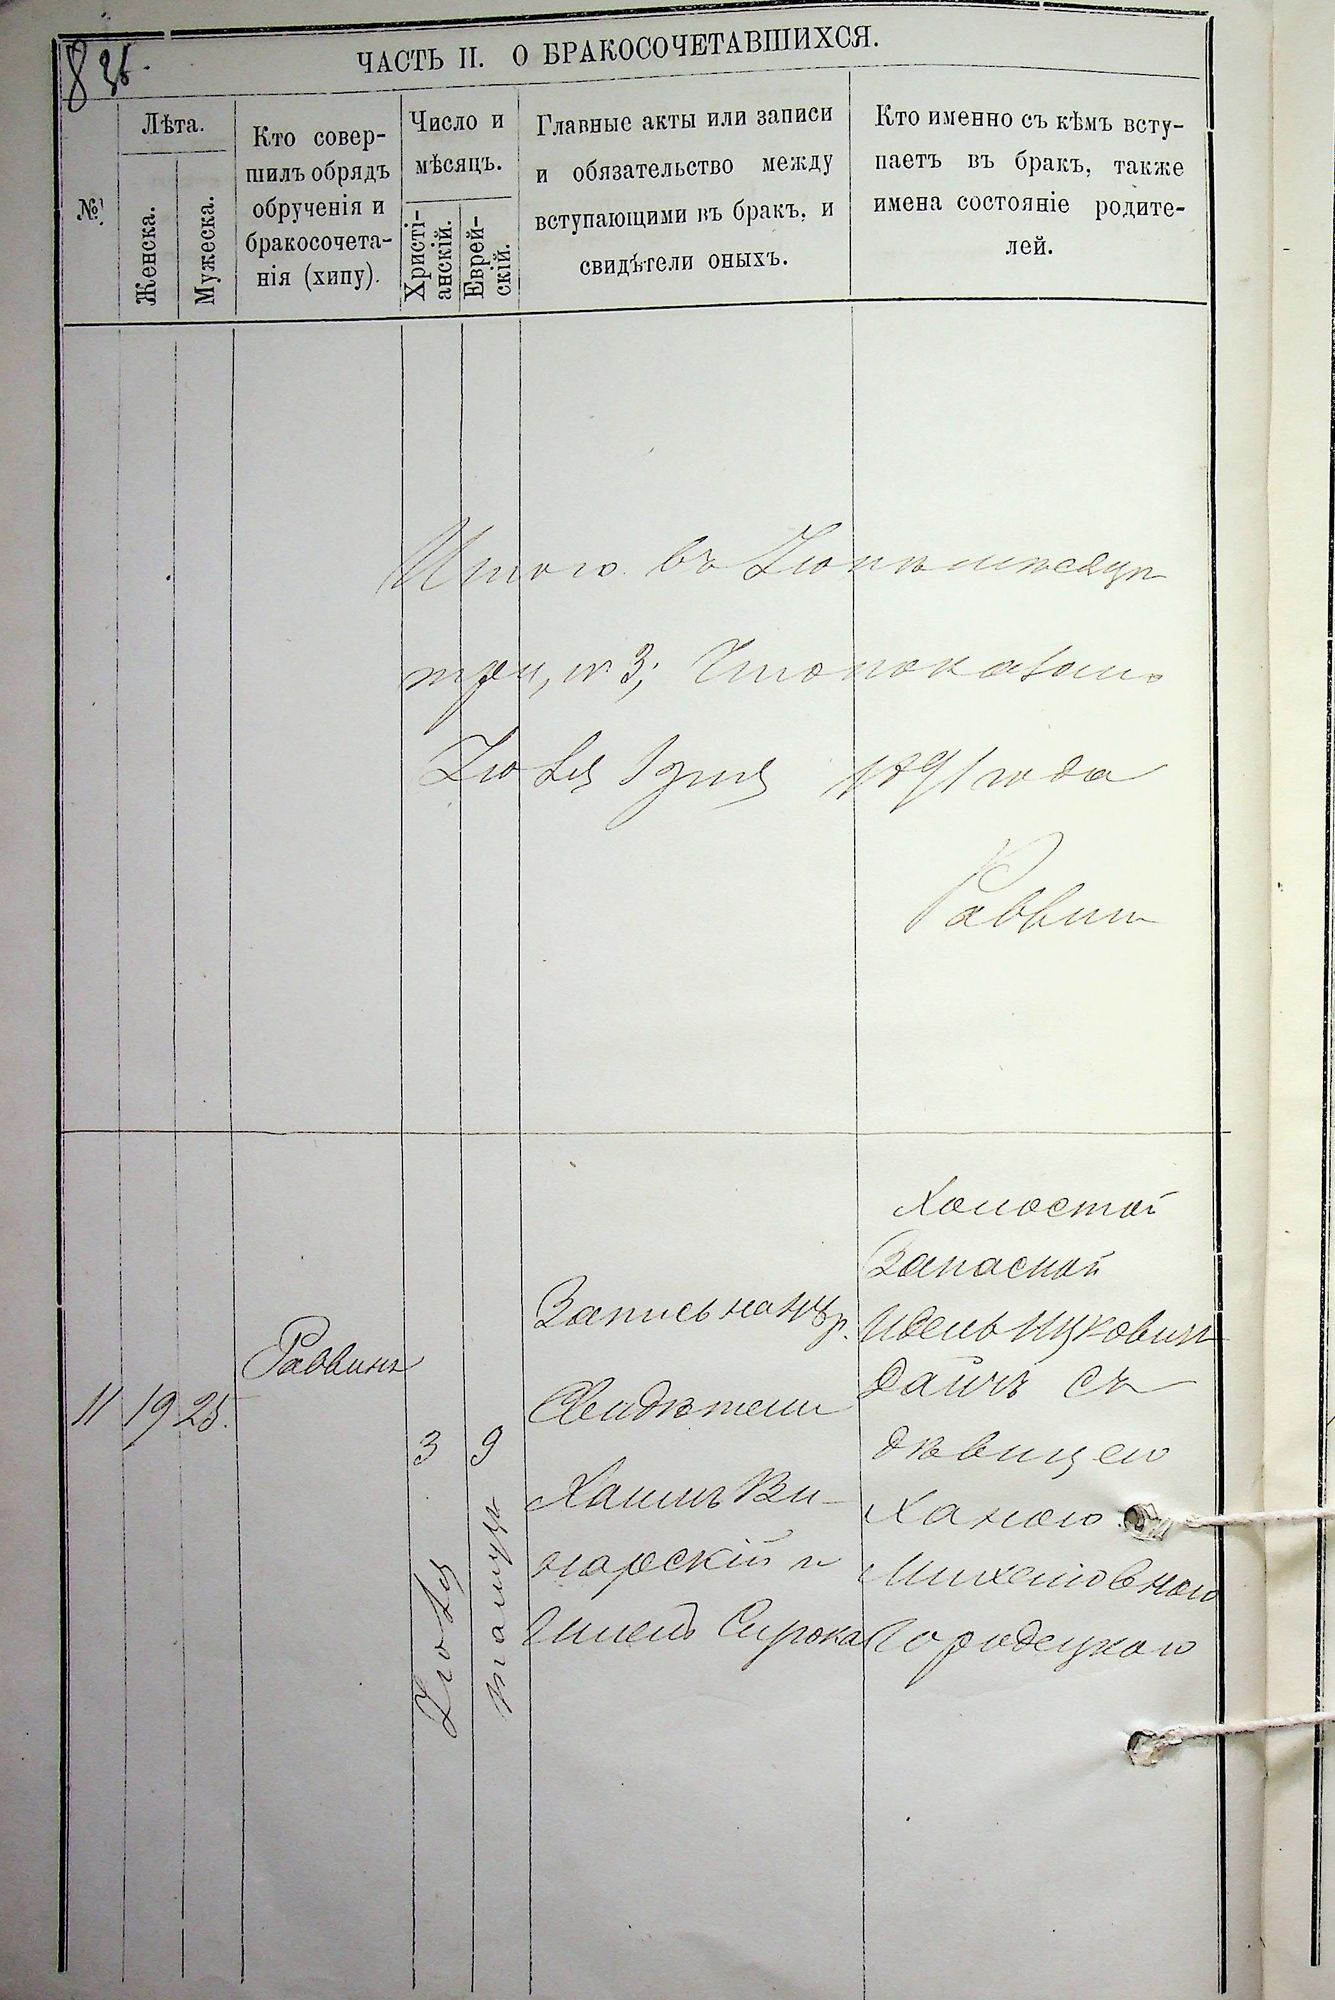 ЧАСТЬ II. О БРАКОСОЧЕТАВШИХСЯ.
№
Лѣта.
Женска.
Мужеска.
Кто совер-
шилъ обрядъ
обрученія и
бракосочета-
нія (хипу).
Число и
мѣсяцъ.
Христі-
анскій.
Еврей-
скій.
Главные акты или записи
и обязательство между
вступающими въ бракъ, и
свидѣтели оныхъ.
Кто именно съ кѣмъ всту-
паетъ въ бракъ, также
имена состояніе родите-
лей.
Итого въ Іюнѣ мѣсяцѣ
три, № 3;
Іюля 1 дня 1891 года
Раввинъ
11
19
25.
Раввинъ
3
Іюля
9
Тамуза
Запись на
Свидѣтели
Хаимъ Ви-
нарскій и
Сирота
Холостой
Запасной
Идель Ицковичъ
Дайчъ съ
дѣвицею
Ханою
Михелювною
Городецкою